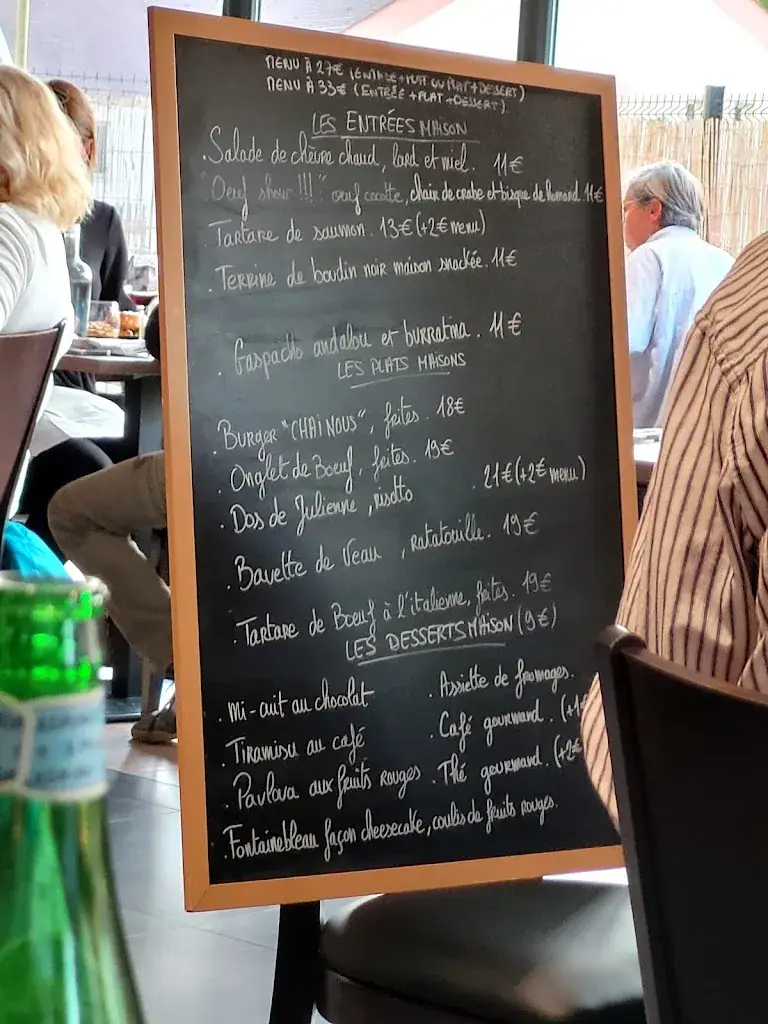 MENU À 27€ (ENTRÉE+PLAT OU PLAT+DESSERT)
MENU À 33€ (ENTRÉE+PLAT+DESSERT)
LES ENTRÉES MAISON
. Salade de chèvre chaud, lard et miel. 11€
"Oeuf show !!!" oeuf cocotte, chair de crabe et bisque de homard. 11€
. Tartare de saumon. 13€ (+2€ menu)
. Terrine de boudin noir maison snackée. 11€
. Gaspacho andalou et burratina. 11€
LES PLATS MAISONS
. Burger "CHAI NOUS", frites. 18€
. Onglet de Boeuf, frites. 19€
. Dos de Julienne, risotto . 21€ (+2€ menu)
. Bavette de Veau , ratatouille. 19€
. Tartare de Boeuf à l'italienne, frites. 19€
LES DESSERTS MAISON (9€)
. Mi-cuit au chocolat . Assiette de fromages.
. Tiramisu au café . Café gourmand. (+1€
. Pavlova aux fruits rouges . Thé gourmand. (+2€
. Fontainebleau façon cheesecake, coulis de fruits rouges.